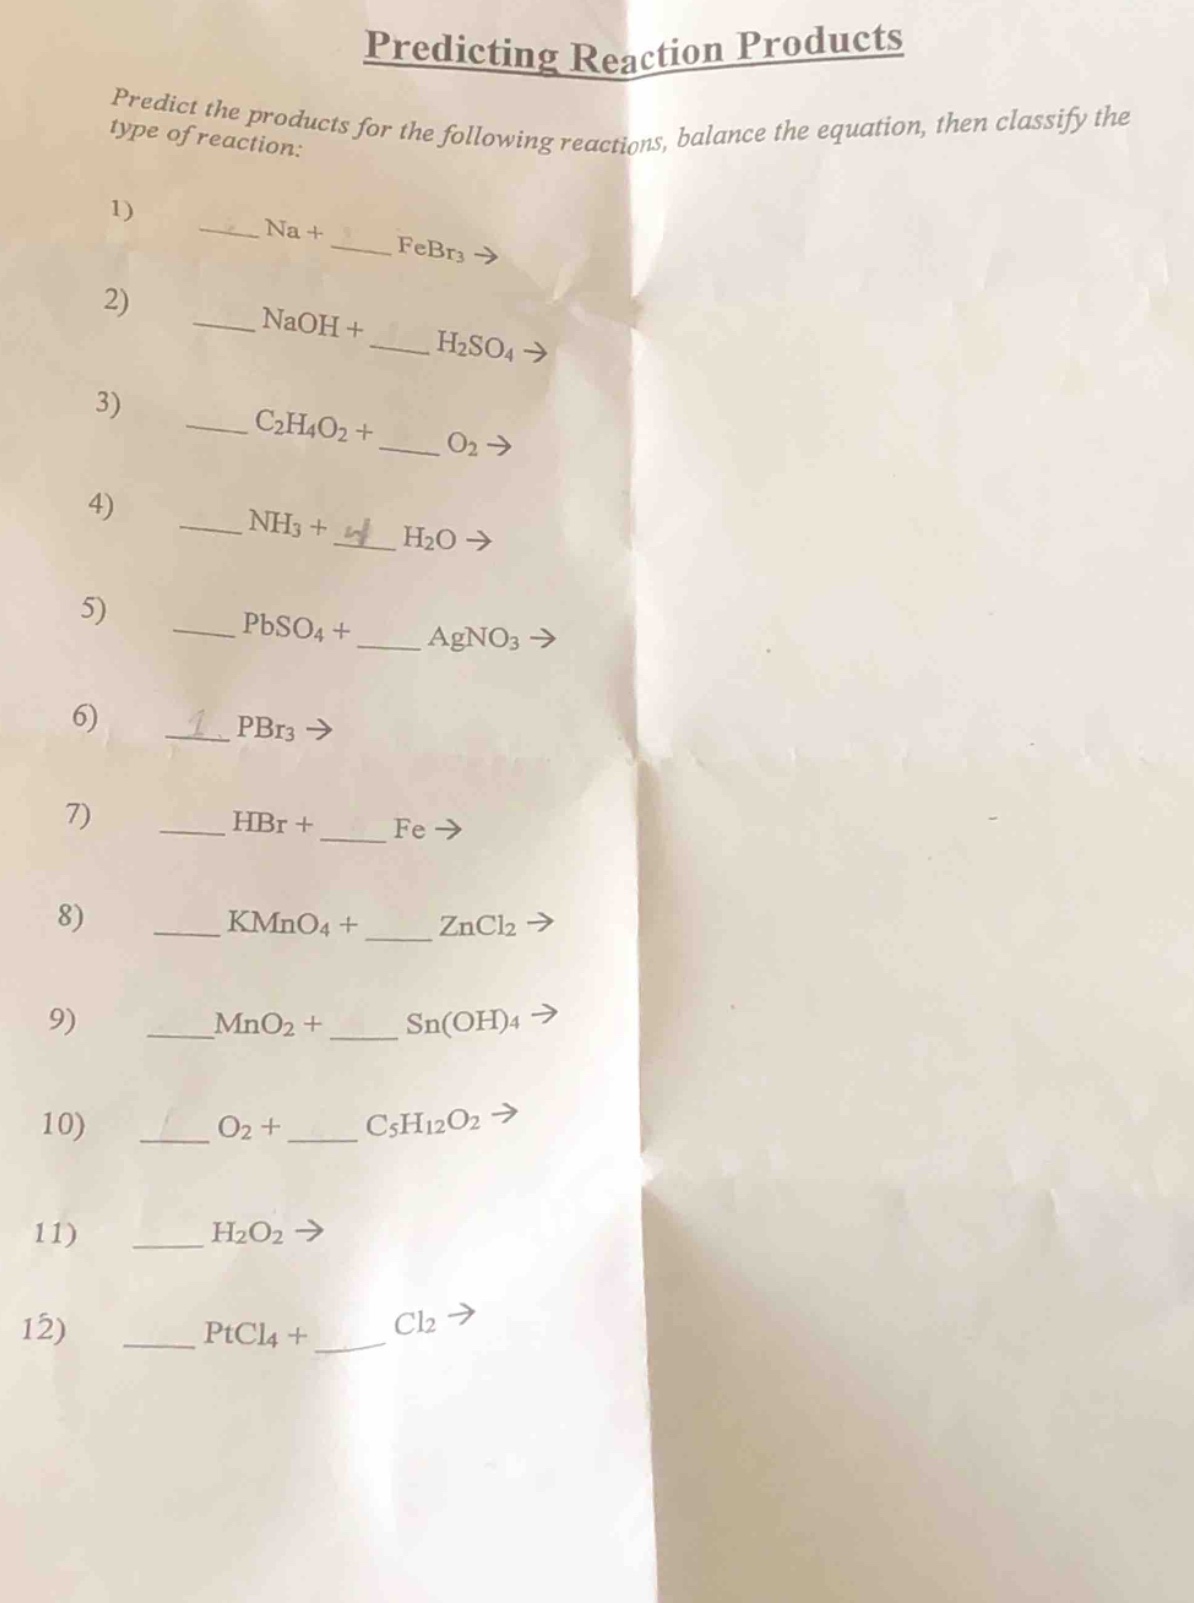 Predicting Reaction Products
Predict the products for the following reactions, balance the equation, then classify the
type of reaction:
1) ____ Na + ____ FeBr₃ →
2) ____ NaOH + ____ H₂SO₄ →
3) ____ C₂H₄O₂ + ____ O₂ →
4) ____ NH₃ + ____ H₂O →
5) ____ PbSO₄ + ____ AgNO₃ →
6) 1 PBr₃ →
7) ____ HBr + ____ Fe →
8) ____ KMnO₄ + ____ ZnCl₂ →
9) ____ MnO₂ + ____ Sn(OH)₄ →
10) ____ O₂ + ____ C₅H₁₂O₂ →
11) ____ H₂O₂ →
12) ____ PtCl₄ + ____ Cl₂ →